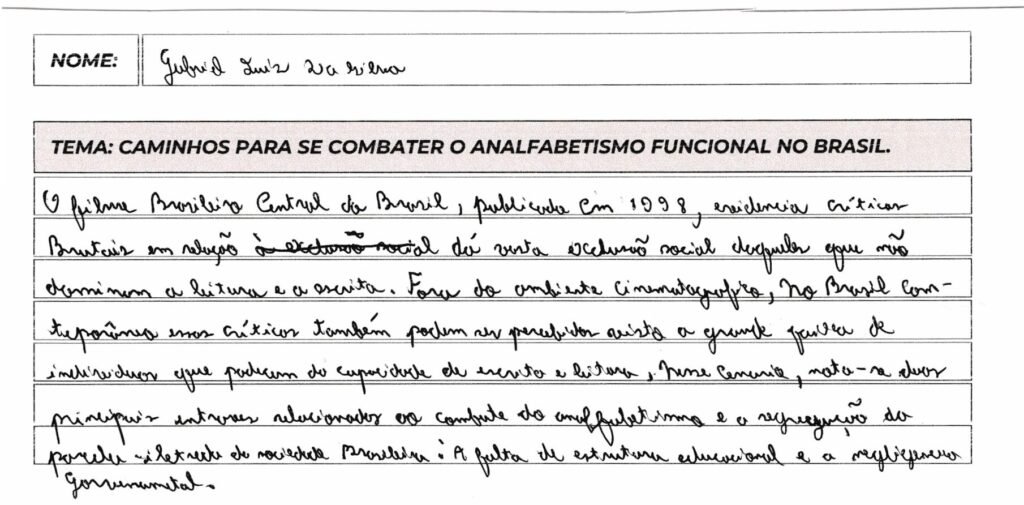 NOME: Gabriel Luiz
TEMA: CAMINHOS PARA SE COMBATER O ANALFABETISMO FUNCIONAL NO BRASIL.
O filme Brasileiro Central do Brasil, publicado em 1998, evidencia críticas
Brutais em relação à exclusão social dá vasta exclusão social daqueles que não
dominam a leitura e a escrita. Fora do ambiente cinematográfico, no Brasil com-
teporâneo essas críticas também podem ser percebidas visto a grande faixa de
individuos que padecem da capacidade de escrita e leitura, nesse cenario, nota-se duos
principais entraves relacionados ao combate do analfabetismo e a segregação da
parcela iletrada da sociedade Brasileira: A falta de estrutura educacional e a negligencia
Governametal.